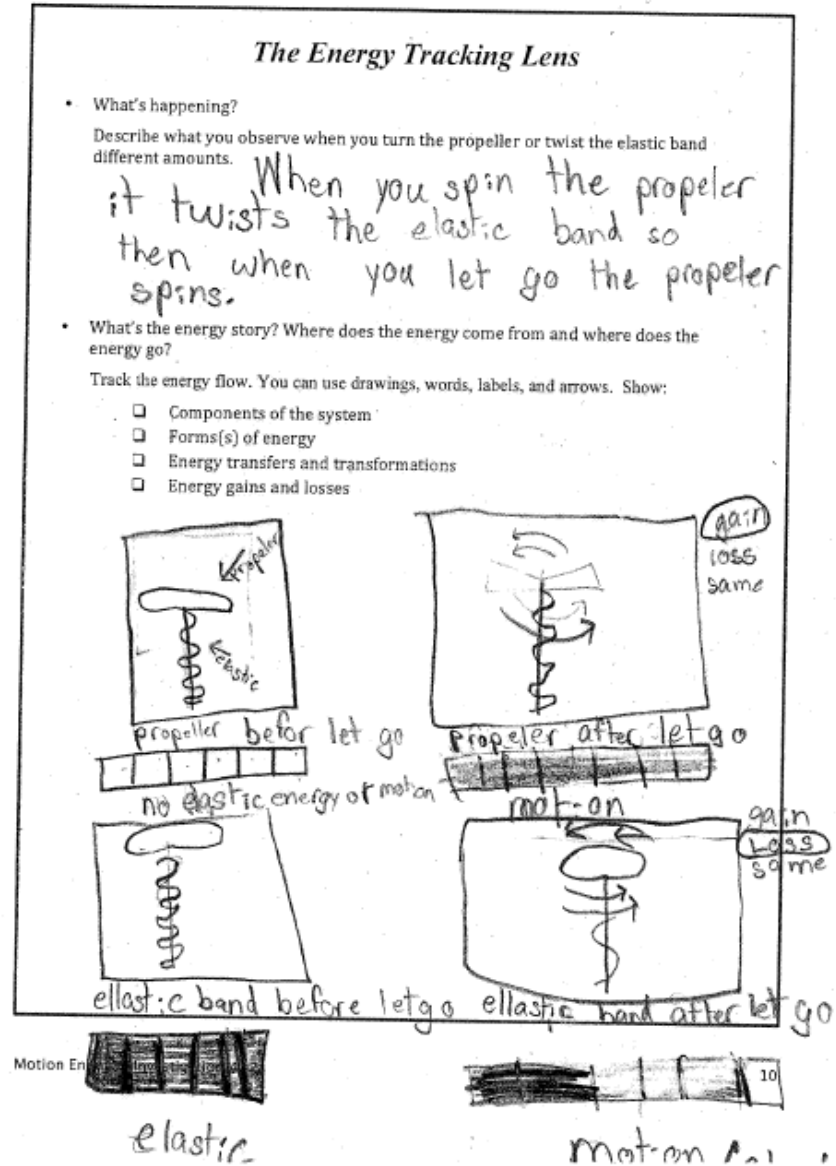 The Energy Tracking Lens
• What's happening?
Describe what you observe when you turn the propeller or twist the elastic band
different amounts.
When you spin the propeler
it twists the elastic band so
then when you let go the propeler
spins.
• What's the energy story? Where does the energy come from and where does the
energy go?
Track the energy flow. You can use drawings, words, labels, and arrows. Show:
❑ Components of the system
❑ Forms(s) of energy
❑ Energy transfers and transformations
❑ Energy gains and losses
propeler
elastic
gain
loss
same
propeller befor let go
propeler after let go
no elastic energy or motion
motion
gain
Loss
same
ellastic band before let go
ellastic band after let go
Motion
10
elastic
motion